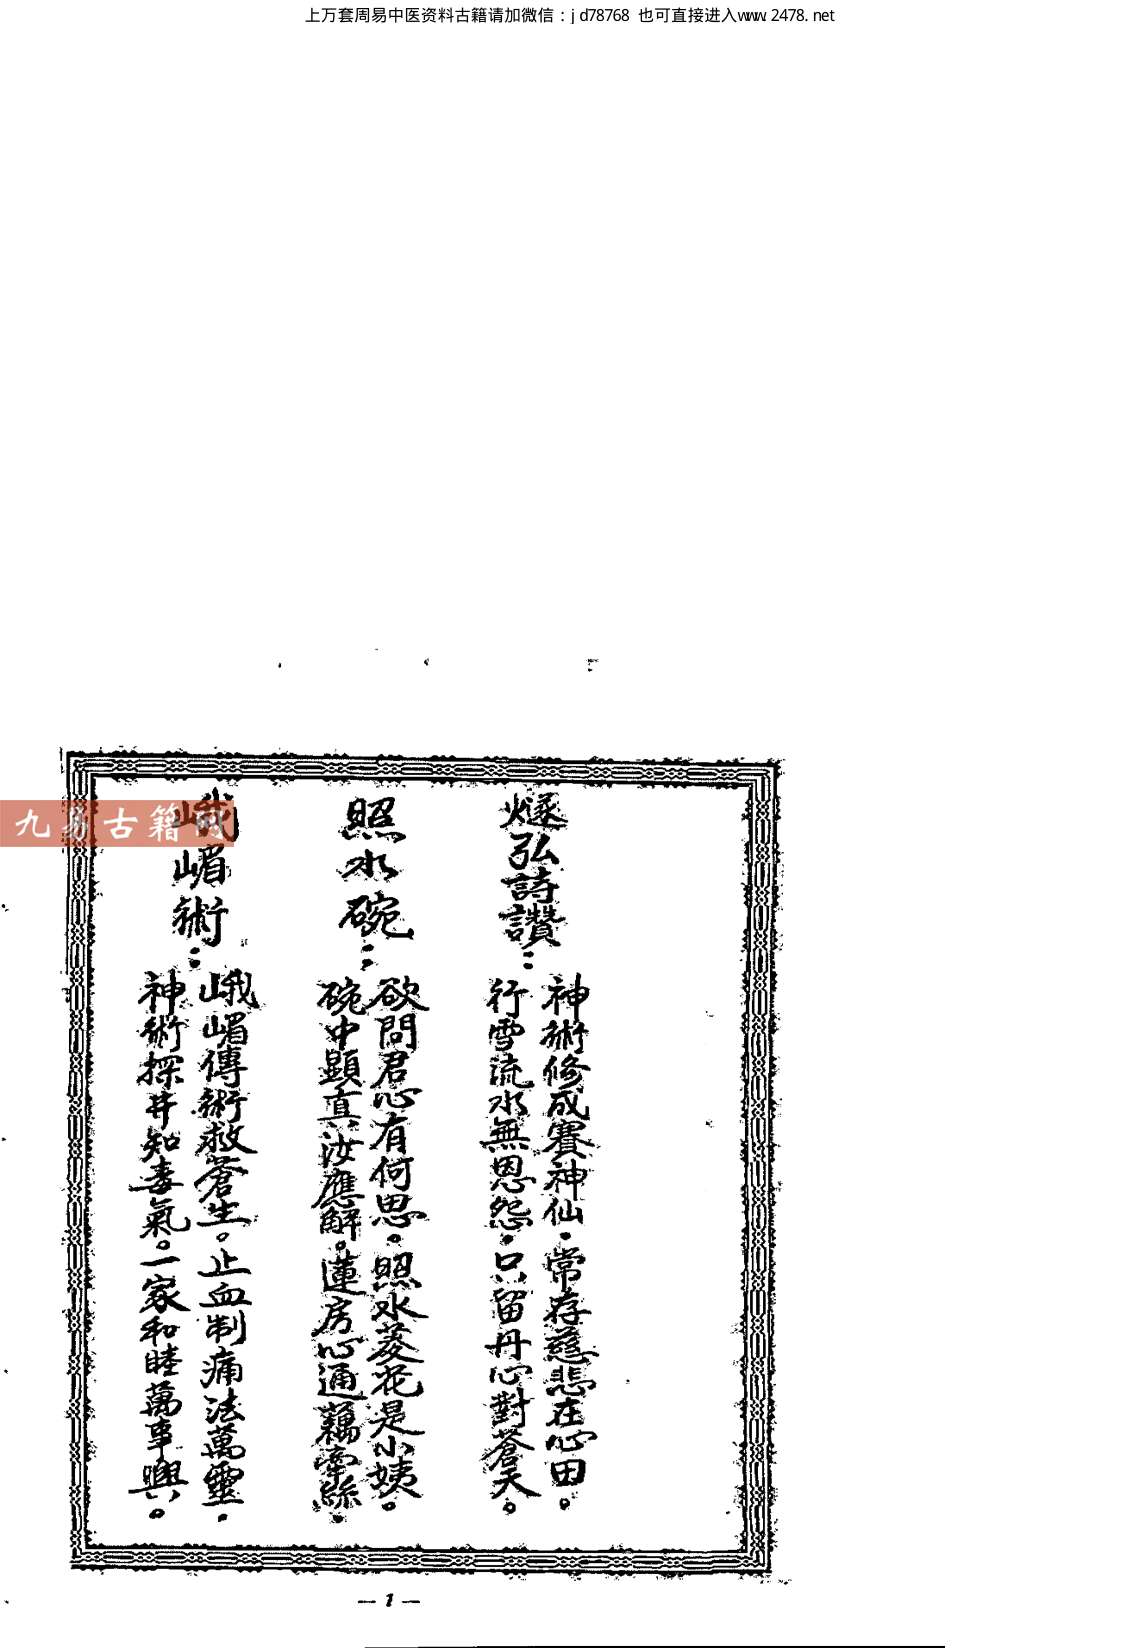 上万套周易中医资料古籍请加微信：jd78768 也可直接进入www.2478.net
燧弘詩讚：
神術修成賽神仙．常存慈悲在心田。
行雲流水無恩怨．只留丹心對蒼天。
照水碗：
欲問君心有何思。照水菱花是小姨。
碗中顯真汝應解。蓮房心通藕牽絲．
峨嵋術：
峨嵋傳術救蒼生。止血制痛法萬靈．
神術探井知毒氣。一家和睦萬事興。
九易古籍网
—1—